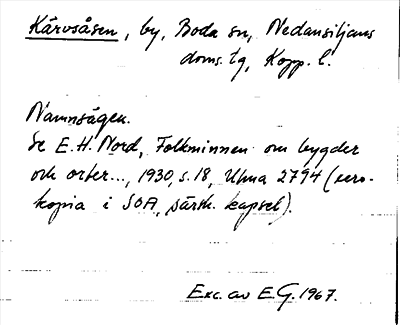 Kärvsåsen, by, Boda sn, Nedansiljans
doms. tg, Kopp. l.
Namnsägen.
Se E.H. Nord, Folkminnen om bygder
och orter..., 1930, s. 18, Uma 2794 (xero-
kopia i SOA, särsk. kapsel).
Exc. av E.G. 1967.